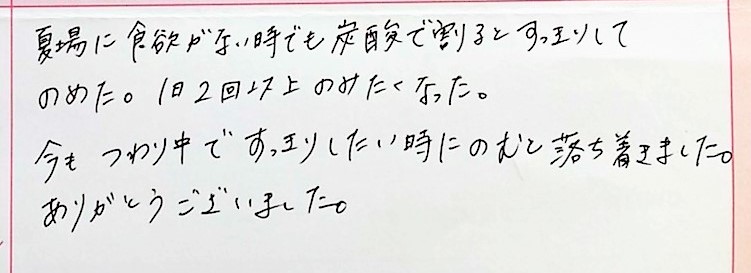 夏場に食欲がない時でも炭酸で割るとすっきりして
のめた。1日2回以上のみたくなった。
今もつわり中ですっきりしたい時にのむと落ち着きました。
ありがとうございました。